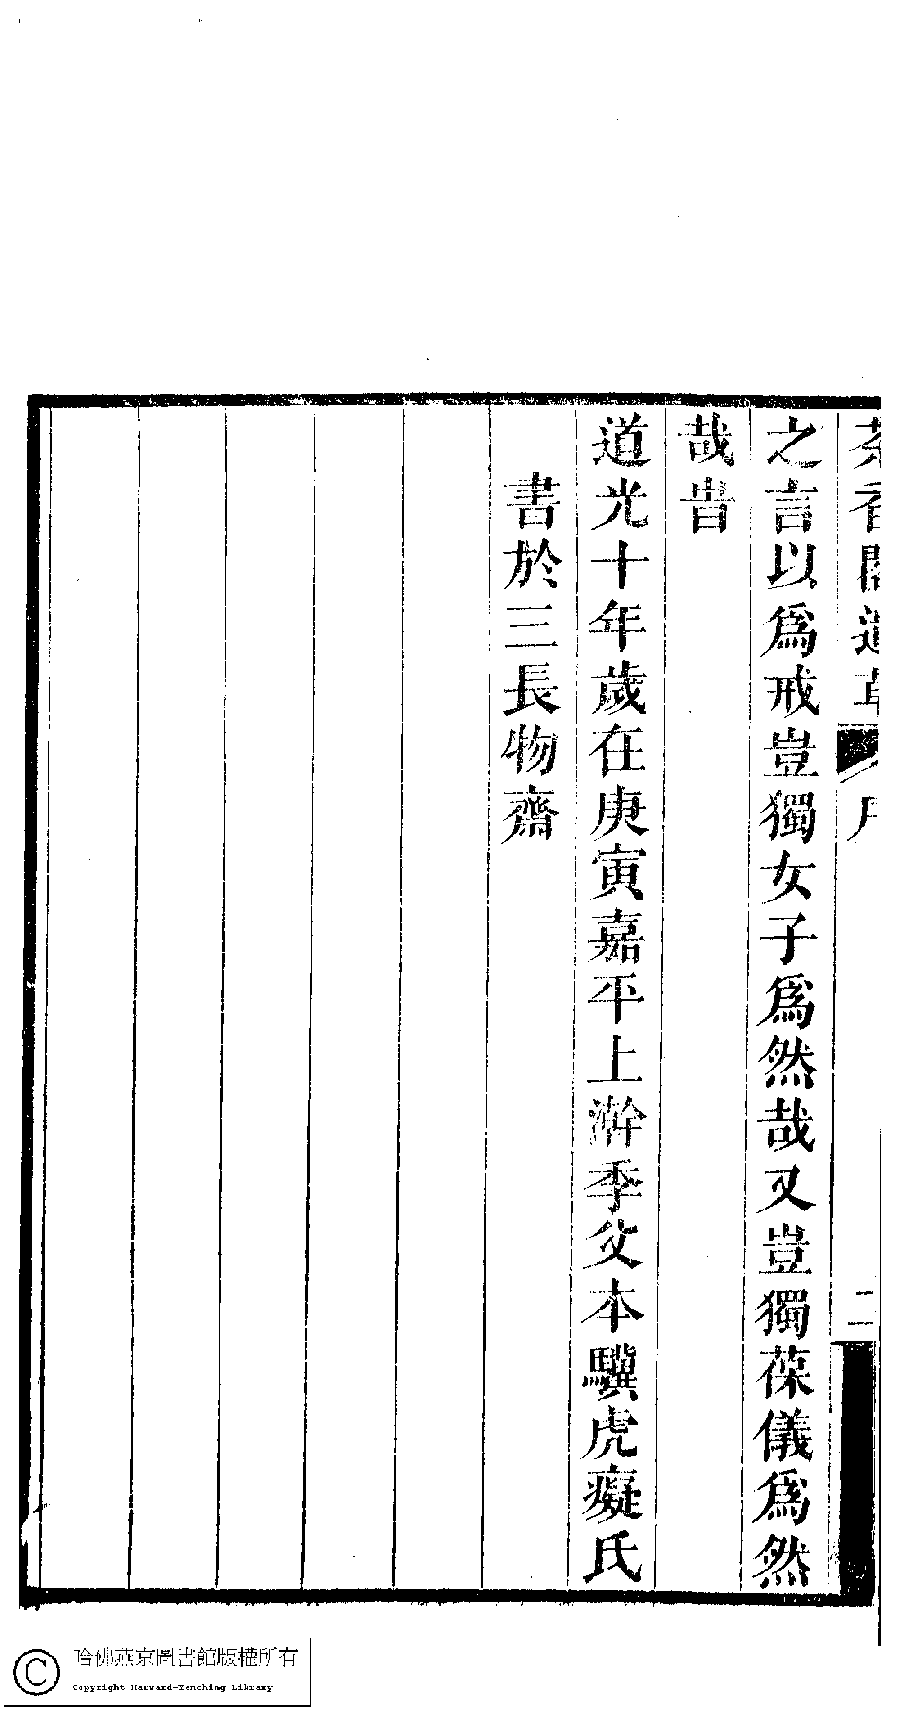 茶香閣遺草 序 二
之言以爲戒豈獨女子爲然哉又豈獨葆儀爲然
哉旹
道光十年歲在庚寅嘉平上澣季父本驥虎癡氏
書於三長物齋
哈佛燕京圖書館版權所有
Copyright Harvard-Yenching Library